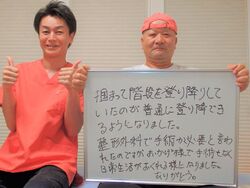 掴まって階段を登り降りして
いたのが普通に登り降できる
るようになりました。
整形外科で手術が必要と言わ
れたのですが、おかげ様で手術せず
日常生活がおくれる様になりました。
ありがとう。